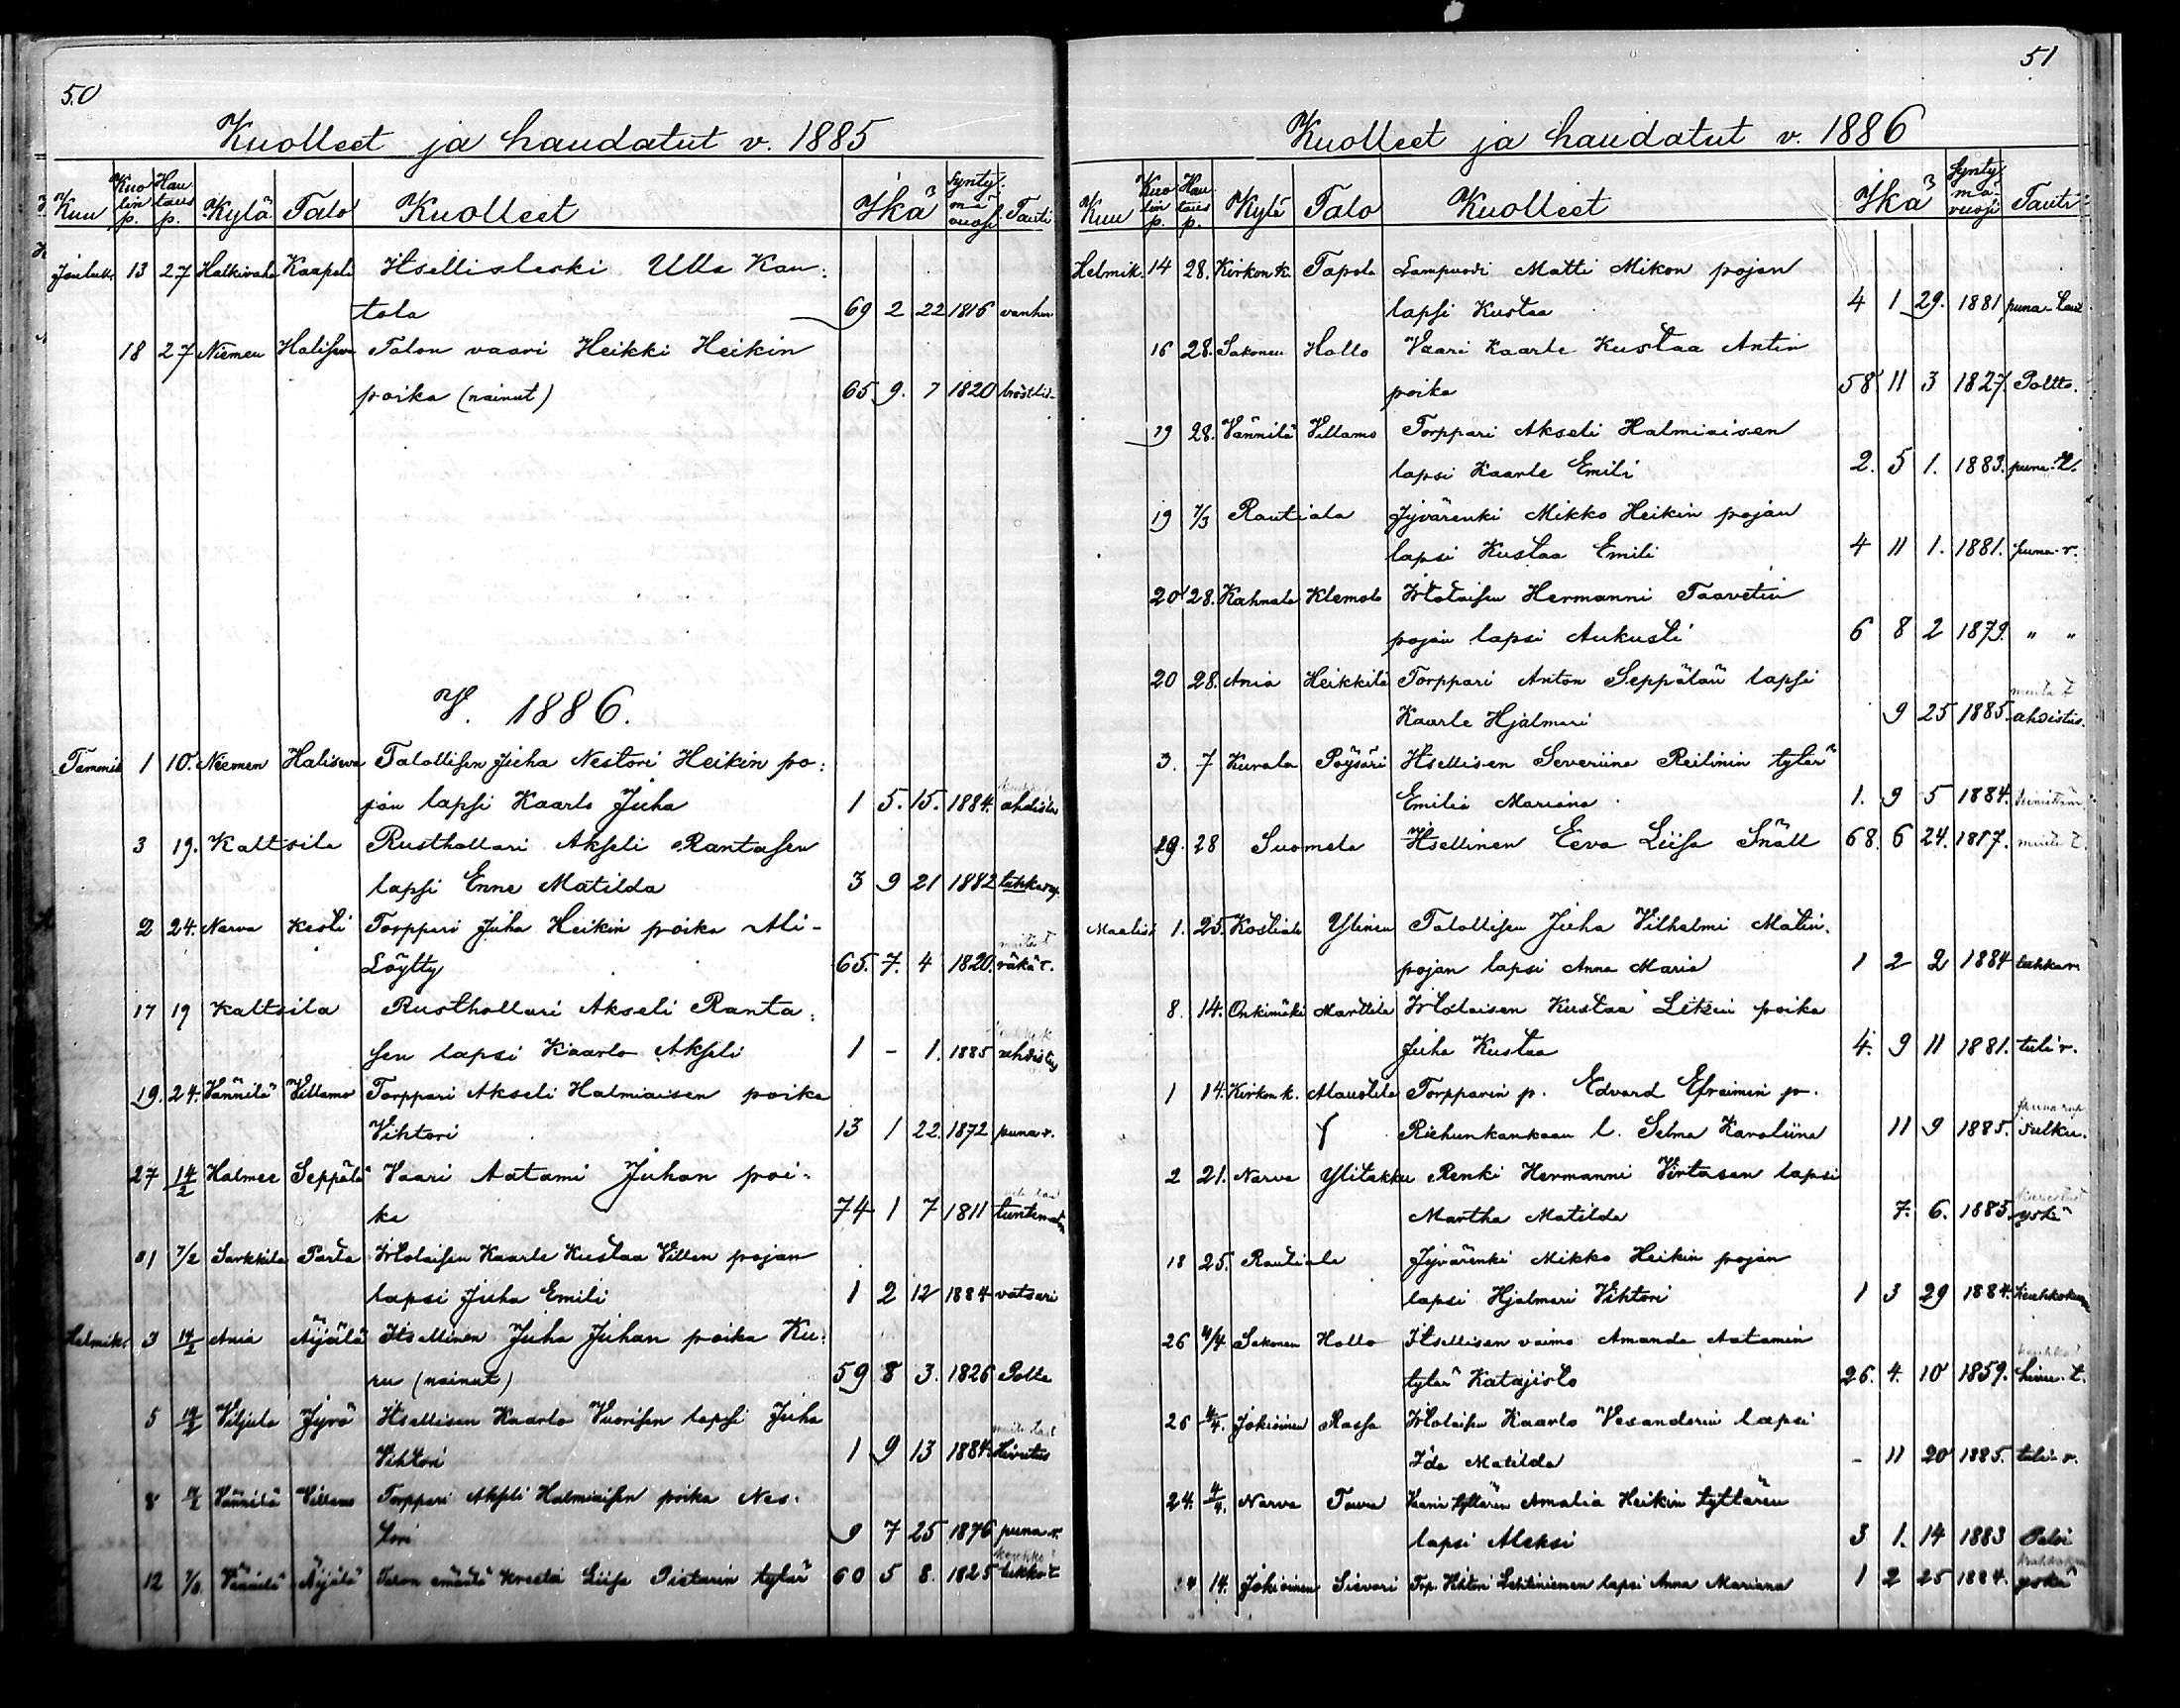 50
Kuolleet ja haudatut v. 1885
Kuu Kuolin p. Hautaus p. Kylä Talo Kuolleet Ikä Syntymävuosi Tauti
Jouluk. 13 27 Halkivaha Kaapeli Itsellisleski Ulla Kan:
tola 69 2 22 1816 vanhu
18 27 Niemen Halisen Talon vaari Heikki Heikin
poika (nainut) 65 9. 7 1820
V. 1886.
Tammik 1 10. Niemen Halisen Talollisen Juha Nestori Heikin po:
jan lapsi Kaarlo Juha 1 5. 15. 1884. ahdistus
3 19. Kaltsila Rusthollari Akseli Rantasen
lapsi Enne Matilda 3 9 21 1882 tuhkarup.
2 24. Narva Kesti Torppari Juha Heikin poika Ali-
Löytty 65. 7. 4 1820. räkät.
17 19 Kaltsila Rusthollari Akseli Ranta:
sen lapsi Kaarlo Akseli 1 - 1. 1885 ahdistus
19. 24. Vännilä Villamo Torppari Akseli Halmiaisen poika
Vihtori 13 1 22. 1872 puna-r.
27 14/2 Halmee Seppälä Vaari Aatami Juhan poi-
ka 74 1 7 1811 tuntematon
31 7/2 Sarkkila Parta Irtolaisen Kaarle Kustaa Villen pojan
lapsi Juha Emili 1 2 12 1884 vatsari
Helmik. 3 14/2 Ania Äijälä Itsellinen Juha Juhan poika Ku:
ru (nainut) 59 8 3. 1826 Polte
5 14/2 Viljula Jyrä Itsellisen Kaarlo Vuorisen lapsi Juha
Vihtori 1 9 13 1884. Hivutus
8 14/2 Vännilä Villamo Torppari Akseli Halmiaisen poika Nes-
tori 9 7 25 1876 puna-r.
12 Vännilä Äijälä Talon emäntä Kreeta Liisa Pietarin tytär 60 5 8. 1825
51
Kuolleet ja haudatut v. 1886
Kuu Kuolin p. Hautaus p. Kylä Talo Kuolleet Ikä Syntymävuosi Tauti
Helmik. 14 28. Kirkonk. Tapola Lampuodi Matti Mikon pojan
lapsi Kustaa 4 1 29. 1881 puna-taut
16 28. Sakonen Hollo Vaari Kaarle Kustaa Antin
poika 58 11 3 1827. Poltto.
19 28. Vännilä Villamo Torppari Akseli Halmiaisen
lapsi Kaarle Emili 2. 5 1. 1883. puna-t.
19 7/3 Rautiala Jyvärenki Mikko Heikin pojan
lapsi Kustaa Emili 4 11 1. 1881. puna-r.
20 28. Kahnala Klemola Irtolaisen Hermanni Taavetin
pojan lapsi Aukusti 6 8 2 1879. " "
20 28. Ania Heikkilä Torppari Anton Seppälän lapsi
Kaarle Hjalmari 9 25 1885. ahdistus.
3. 7 Kurala Pöysäri Itsellisen Severiina Reilinin tytär
Emilia Mariana 1. 9 5 1884.
29. 28 Suomela Itsellinen Eeva Liisa Snäll 68. 6 24. 1817. muita t.
Maalisk 1. 25. Kostiala Ylinen Talollisen Juha Vilhelmi Matin.
pojan lapsi Anna Maria 1 2 2 1884 tuhkar.
8. 14. Onkimäki Marttila Irtolaisen Kustaa poika
Juha Kustaa 4. 9 11 1881. tuli r.
1 14. Kirkonk. Alaustila Torpparin p. Edvard Efraimin p.
Riehunkankaan l. Selma Karoliina 11 9 1885. sulku.
2 21. Narva Ylitakku Renki Hermanni Virtasen lapsi
Martha Matilda 7. 6. 1885. yskä
18 25. Rautiala Jyvärenki Mikko Heikin pojan
lapsi Hjalmari Vihtori 1 3 29 1884. keuhkokuu
26 4/4 Sakonen Hollo Itsellisen vaimo Amanda Aatamin
tytär Katajisto 26. 4. 10 1859. hivu. t.
26 4/4. Jokioinen Rassa Irtolaisen Kaarlo Vesanderin lapsi
Ida Matilda - 11 20 1885. tuli-r.
24. 4/4. Narva Vaarin tyttären Amalia Heikin tyttären
lapsi Aleksi 3 1. 14 1883
14. Jokioinen Sisvari Torp. Vihtori Lehtiniemen lapsi Anna Mariana 1 2 25 1884. yskä